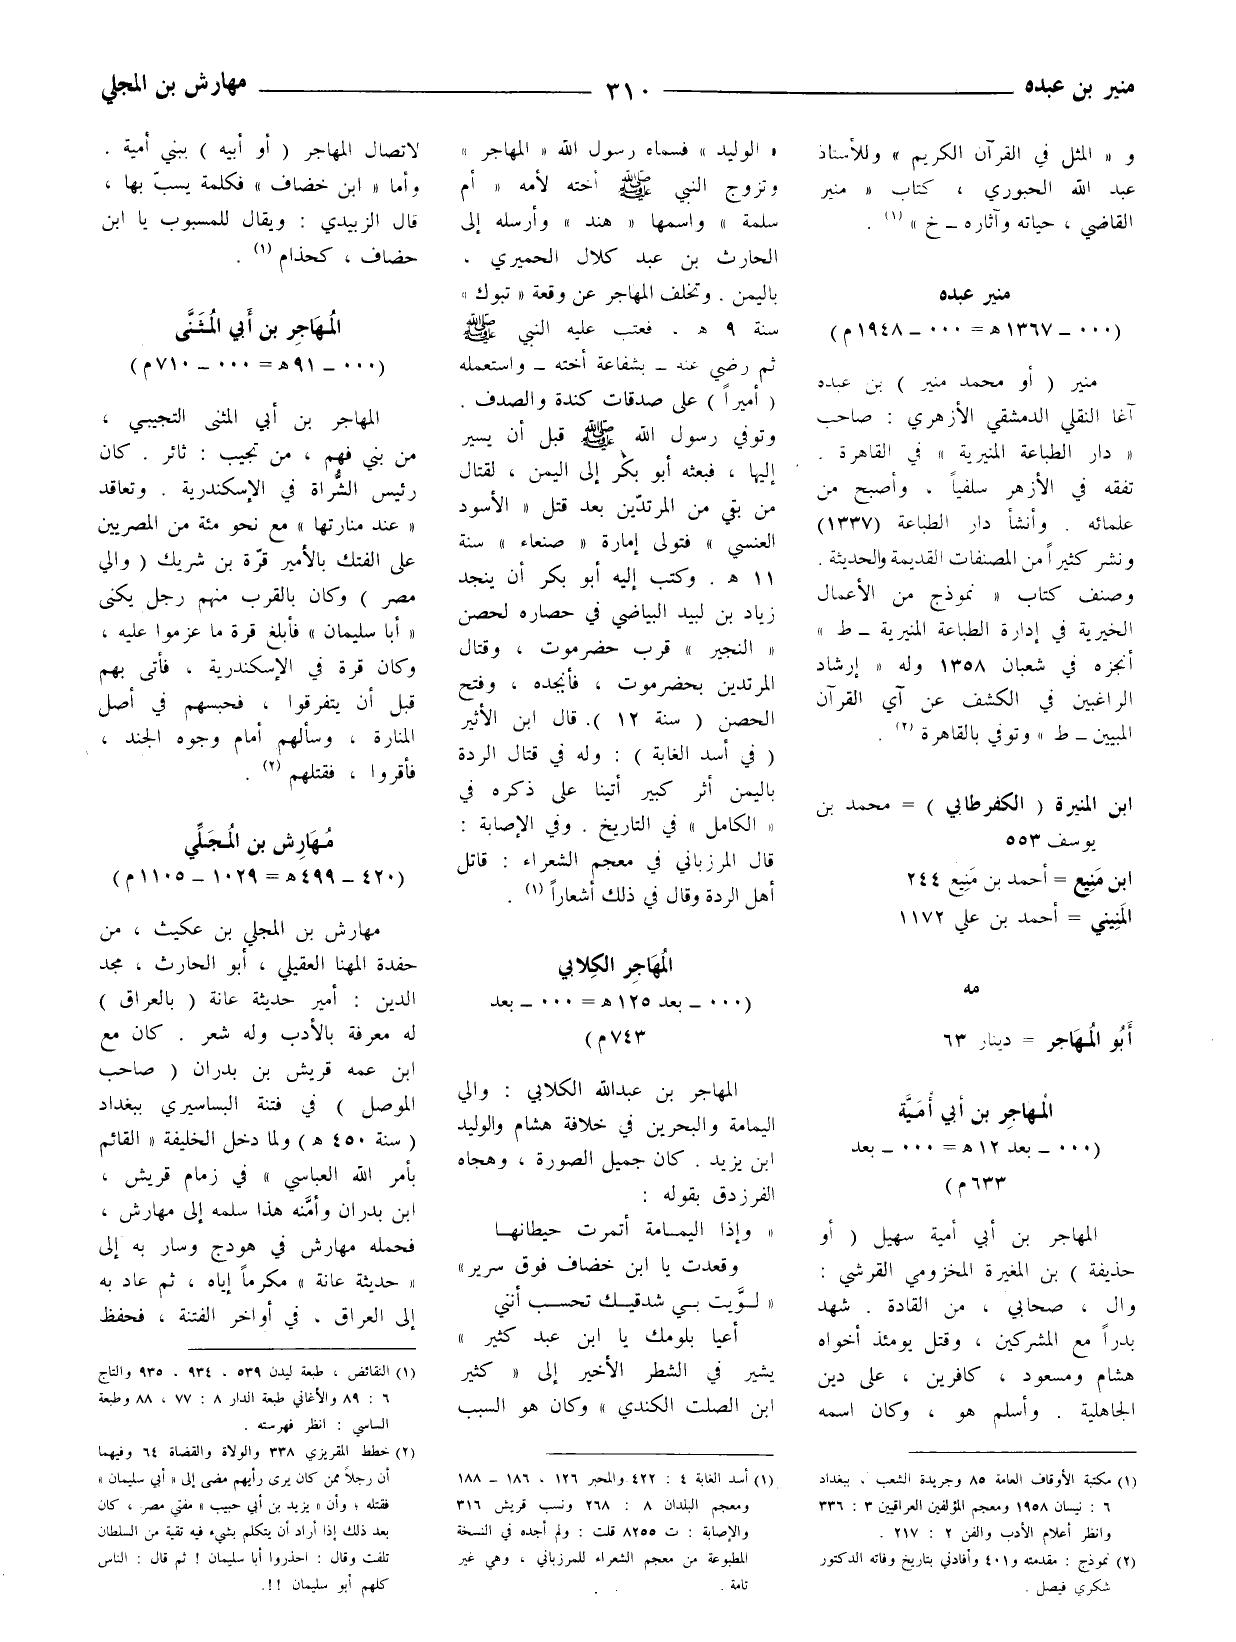 منير بن عبده ٣١٠ مهارش بن المجلي
و « المثل في القرآن الكريم » وللأستاذ
عبد الله الجبوري ، كتاب « منير
القاضي ، حياته وآثاره ـ خ » (١) .
منير عبده
(٠٠٠ ـ ١٣٦٧ هـ = ٠٠٠ ـ ١٩٤٨ م)
منير ( أو محمد منير ) بن عبده
آغا النقلي الدمشقي الأزهري : صاحب
« دار الطباعة المنيرية » في القاهرة .
تفقه في الأزهر سلفياً . وأصبح من
علمائه . وأنشأ دار الطباعة (١٣٣٧)
ونشر كثيراً من المصنفات القديمة والحديثة .
وصنف كتاب « نموذج من الأعمال
الخيرية في إدارة الطباعة المنيرية ـ ط »
أنجزه في شعبان ١٣٥٨ وله « إرشاد
الراغبين في الكشف عن آي القرآن
المبين ـ ط » وتوفي بالقاهرة (٢) .
ابن المنيرة ( الكفرطابي ) = محمد بن
يوسف ٥٥٣
ابن مَنِيع = أحمد بن مَنِيع ٢٤٤
المَنِيني = أحمد بن علي ١١٧٢
مه
أَبُو المُهَاجر = دينار ٦٣
المُهاجر بن أبي أُمَيَّة
(٠٠٠ ـ بعد ١٢ هـ = ٠٠٠ ـ بعد
٦٣٣ م)
المهاجر بن أبي أمية سهيل ( أو
حذيفة ) بن المغيرة المخزومي القرشي :
وال ، صحابي ، من القادة . شهد
بدراً مع المشركين ، وقتل يومئذ أخواه
هشام ومسعود ، كافرين ، على دين
الجاهلية . وأسلم هو ، وكان اسمه
(١) مكتبة الأوقاف العامة ٨٥ وجريدة الشعب . ببغداد
٦ : نيسان ١٩٥٨ ومعجم المؤلفين العراقيين ٣ : ٣٣٦
وانظر أعلام الأدب والفن ٢ : ٢١٧ .
(٢) نموذج : مقدمته و٤٠١ وأفادني بتاريخ وفاته الدكتور
شكري فيصل .
« الوليد » فسماه رسول الله « المهاجر »
وتزوج النبي ﷺ أخته لأمه « أم
سلمة » واسمها « هند » وأرسله إلى
الحارث بن عبد كلال الحميري ،
باليمن . وتخلف المهاجر عن وقعة « تبوك »
سنة ٩ هـ . فعتب عليه النبي ﷺ
ثم رضي عنه ـ بشفاعة أخته ـ واستعمله
( أميراً ) على صدقات كندة والصدف .
وتوفي رسول الله ﷺ قبل أن يسير
إليها ، فبعثه أبو بكر إلى اليمن ، لقتال
من بقي من المرتدّين بعد قتل « الأسود
العنسي » فتولى إمارة « صنعاء » سنة
١١ هـ . وكتب إليه أبو بكر أن ينجد
زياد بن لبيد البياضي في حصاره لحصن
« النجير » قرب حضرموت ، وقتال
المرتدين بحضرموت ، فأنجده ، وفتح
الحصن ( سنة ١٢ ). قال ابن الأثير
( في أسد الغابة ) : وله في قتال الردة
باليمن أثر كبير أتينا على ذكره في
« الكامل » في التاريخ . وفي الإصابة :
قال المرزباني في معجم الشعراء : قاتل
أهل الردة وقال في ذلك أشعاراً (١) .
المُهَاجِر الكِلابي
(٠٠٠ ـ بعد ١٢٥ هـ = ٠٠٠ ـ بعد
٧٤٣ م)
المهاجر بن عبدالله الكلابي : والي
اليمامة والبحرين في خلافة هشام والوليد
ابن يزيد . كان جميل الصورة ، وهجاه
الفرزدق بقوله :
« وإذا اليمامة أتمرت حيطانها
وقعدت يا ابن خضاف فوق سرير»
« لوَّيت بي شدقيك تحسب أنني
أعيا بلومك يا ابن عبد كثير »
يشير في الشطر الأخير إلى « كثير
ابن الصلت الكندي » وكان هو السبب
(١) أسد الغابة ٤ : ٤٢٢ والمحبر ١٢٦ ، ١٨٦ ـ ١٨٨
ومعجم البلدان ٨ : ٢٦٨ ونسب قريش ٣١٦
والإصابة : ت ٨٢٥٥ قلت : ولم أجده في النسخة
المطبوعة من معجم الشعراء للمرزباني ، وهي غير
تامة .
لاتصال المهاجر ( أو أبيه ) ببني أمية .
وأما « ابن خضاف » فكلمة يسبّ بها ،
قال الزبيدي : ويقال للمسبوب يا ابن
خضاف ، كحذام (١) .
المُهَاجِر بن أَبي المُثَنَّى
(٠٠٠ ـ ٩١ هـ = ٠٠٠ ـ ٧١٠ م)
المهاجر بن أبي المثنى التجيبي ،
من بني فهم ، من تجيب : ثائر . كان
رئيس الشُّراة في الإسكندرية . وتعاقد
« عند منارتها » مع نحو مئة من المصريين
على الفتك بالأمير قرّة بن شريك ( والي
مصر ) وكان بالقرب منهم رجل يكنى
« أبا سليمان » فأبلغ قرة ما عزموا عليه ،
وكان قرة في الإسكندرية ، فأتى بهم
قبل أن يتفرقوا ، فحبسهم في أصل
المنارة ، وسألهم أمام وجوه الجند ،
فأقروا ، فقتلهم (٢) .
مُهَارِش بن المُجَلِّي
(٤٢٠ ـ ٤٩٩ هـ = ١٠٢٩ ـ ١١٠٥ م)
مهارش بن المجلي بن عكيث ، من
حفدة المهنا العقيلي ، أبو الحارث ، مجد
الدين : أمير حديثة عانة ( بالعراق )
له معرفة بالأدب وله شعر . كان مع
ابن عمه قريش بن بدران ( صاحب
الموصل ) في فتنة البساسيري ببغداد
( سنة ٤٥٠ هـ ) ولما دخل الخليفة « القائم
بأمر الله العباسي » في زمام قريش ،
ابن بدران وأمَّنه هذا سلمه إلى مهارش ،
فحمله مهارش في هودج وسار به إلى
« حديثة عانة » مكرماً إياه ، ثم عاد به
إلى العراق . في أواخر الفتنة ، فحفظ
(١) النقائض ، طبعة ليدن ٥٣٩ ، ٩٣٤ ، ٩٣٥ والتاج
٦ : ٨٩ والأغاني طبعة الدار ٨ : ٧٧ ، ٨٨ وطبعة
الساسي : انظر فهرسته .
(٢) خطط المقريزي ٣٣٨ والولاة والقضاة ٦٤ وفيهما
أن رجلاً ممن كان يرى رأيهم مضى إلى « أبي سليمان »
فقتله ؛ وأن « يزيد بن أبي حبيب » مفتي مصر ، كان
بعد ذلك إذا أراد أن يتكلم بشيء فيه تقية من السلطان
تلفت وقال : احذروا أبا سليمان ! ثم قال : الناس
كلهم أبو سليمان !!.